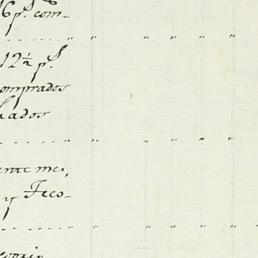 6 p.s com-
12½ p.s
omprados
ados
ente mes,
y Feco-